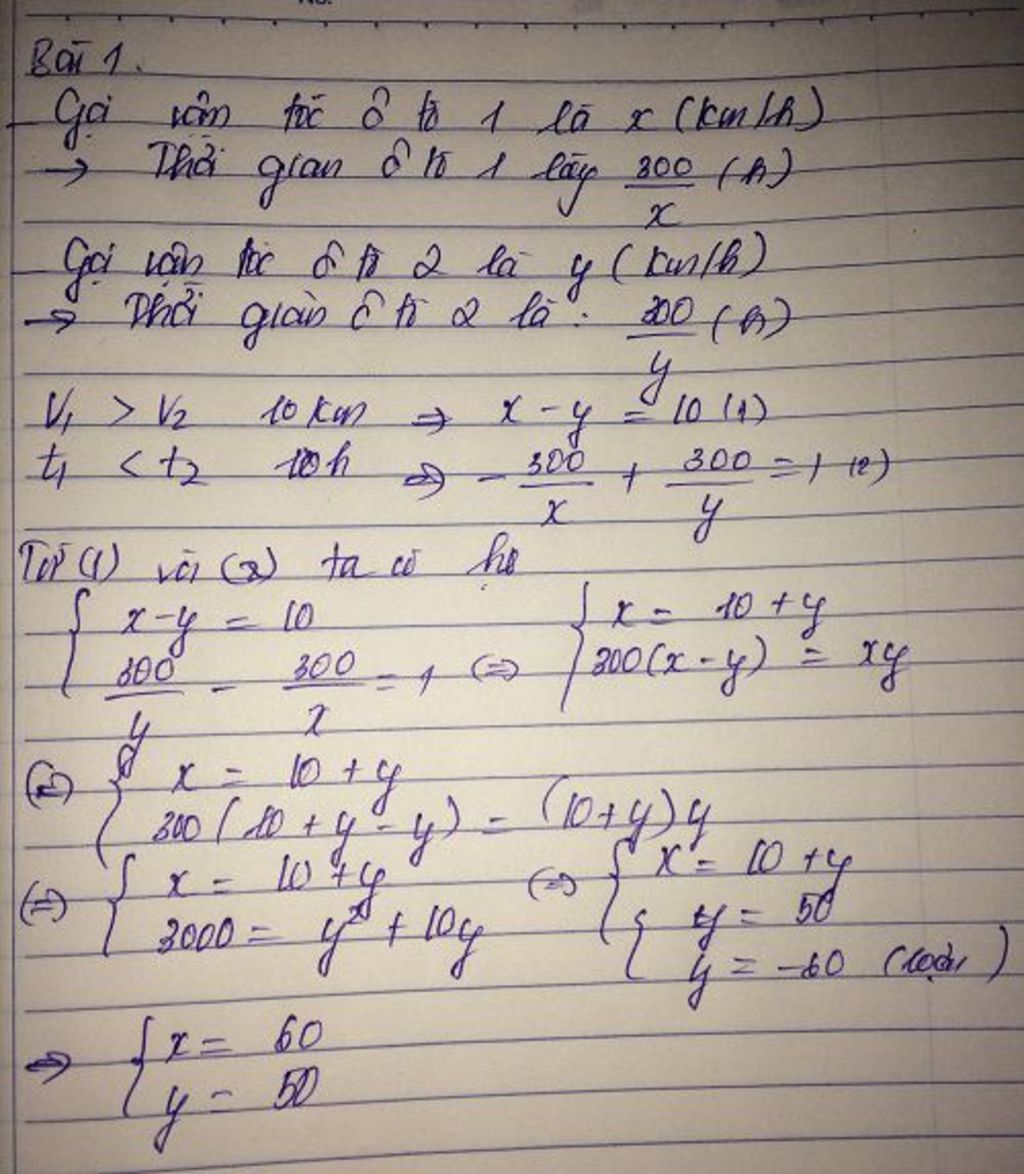 Bài 1.
Gọi vân tốc ô tô 1 là x (km/h)
→ Thời gian ô tô 1 300/x (h)
Gọi vận tốc ô tô 2 là y (km/h)
→ Thời gian ô tô 2 là : 300/y (h)
V₁ > V₂ 10 km ⇒ x - y = 10 (1)
t₁ < t₂ h ⇒ - 300/x + 300/y = 1 (2)
Từ (1) và (2) ta có hệ
{ x - y = 10
300/y - 300/x = 1 (=) { x = 10 + y
300(x - y) = xy
(=) { x = 10 + y
300(10 + y - y) = (10 + y)y
(=) { x = 10 + y
3000 = y² + 10y (=) { x = 10 + y
{ y = 50
y = -60 (loại)
⇒ { x = 60
y = 50